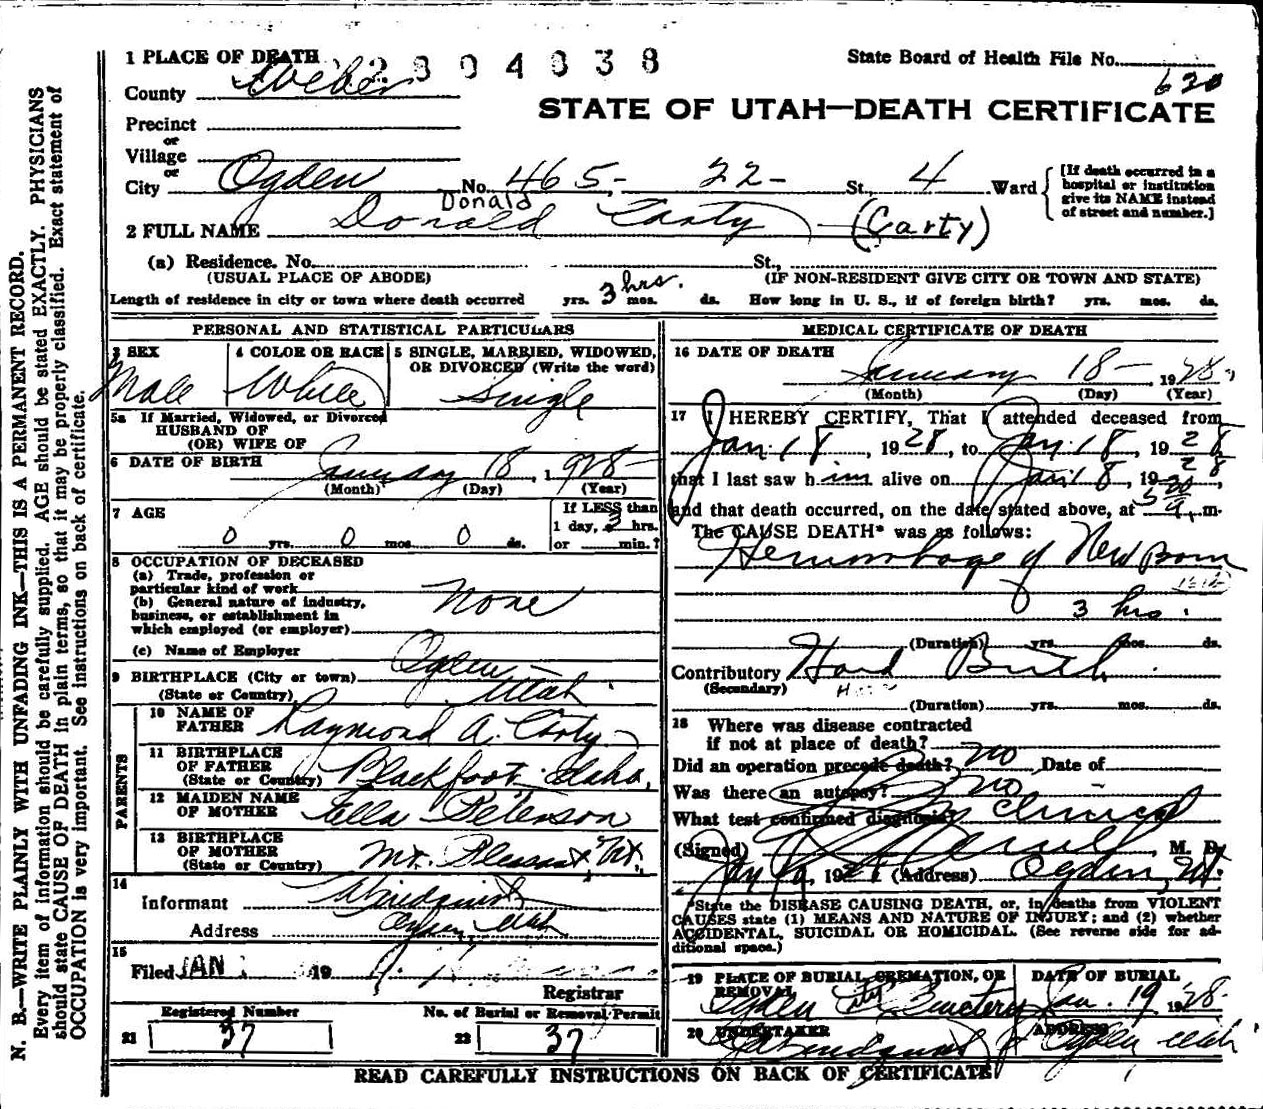 N. B.—WRITE PLAINLY WITH UNFADING INK—THIS IS A PERMANENT RECORD.
Every item of information should be carefully supplied. AGE should be stated EXACTLY. PHYSICIANS
should state CAUSE OF DEATH in plain terms, so that it may be properly classified. Exact statement of
OCCUPATION is very important. See instructions on back of certificate.
1 PLACE OF DEATH
State Board of Health File No. 620
County Weber
STATE OF UTAH—DEATH CERTIFICATE
Precinct
or
Village
or
City Ogden No. 465- 22- St., 4 Ward
[If death occurred in a
hospital or institution
give its NAME instead
of street and number.]
Donald
2 FULL NAME Donald Carty (Carty)
(a) Residence. No. St.,
(USUAL PLACE OF ABODE) (IF NON-RESIDENT GIVE CITY OR TOWN AND STATE)
Length of residence in city or town where death occurred yrs. 3 hrs. mos. ds. How long in U. S., if of foreign birth? yrs. mos. ds.
PERSONAL AND STATISTICAL PARTICULARS
3 SEX
Male
4 COLOR OR RACE
White
5 SINGLE, MARRIED, WIDOWED,
OR DIVORCED (Write the word)
Single
5a If Married, Widowed, or Divorced
HUSBAND OF
(OR) WIFE OF
6 DATE OF BIRTH January 18, 1928
(Month) (Day) (Year)
7 AGE
0 yrs. 0 mos. 0 ds.
If LESS than
1 day, 3 hrs.
or min.?
8 OCCUPATION OF DECEASED
(a) Trade, profession or
particular kind of work
(b) General nature of industry,
business, or establishment in
which employed (or employer)
None
(c) Name of Employer
9 BIRTHPLACE (City or town) Ogden
(State or Country) Utah.
PARENTS
10 NAME OF
FATHER Raymond A. Carty
11 BIRTHPLACE
OF FATHER
(State or Country) Blackfoot, Idaho,
12 MAIDEN NAME
OF MOTHER Ella Peterson
13 BIRTHPLACE
OF MOTHER
(State or Country) Mt. Pleasant, Ut.
14
Informant
Address Ogden, Utah
15
Filed JAN 19
Registrar
Registered Number
21 37
No. of Burial or Removal Permit
22 37
MEDICAL CERTIFICATE OF DEATH
16 DATE OF DEATH
January 18- 1928
(Month) (Day) (Year)
17 I HEREBY CERTIFY, That I attended deceased from
Jan. 18, 1928, to Jan. 18, 1928
that I last saw him alive on Jan. 18, 1928,
and that death occurred, on the date stated above, at m.
The CAUSE DEATH* was as follows:
Hemorrhage of New Born
3 hrs.
(Duration) yrs. mos. ds.
Contributory Hard Birth
(Secondary)
(Duration) yrs. mos. ds.
18 Where was disease contracted
if not at place of death?
Did an operation precede death? no Date of
Was there an autopsy? no
What test confirmed diagnosis? Clinical
(Signed) M. D.
Jan 19, 19 (Address) Ogden, Ut.
*State the DISEASE CAUSING DEATH, or, in deaths from VIOLENT
CAUSES state (1) MEANS AND NATURE OF INJURY; and (2) whether
ACCIDENTAL, SUICIDAL OR HOMICIDAL. (See reverse side for ad-
ditional space.)
19 PLACE OF BURIAL, CREMATION, OR
REMOVAL
Ogden City Cemetery
DATE OF BURIAL
Jan. 19 1928
20 UNDERTAKER
ADDRESS
Ogden, Utah
READ CAREFULLY INSTRUCTIONS ON BACK OF CERTIFICATE